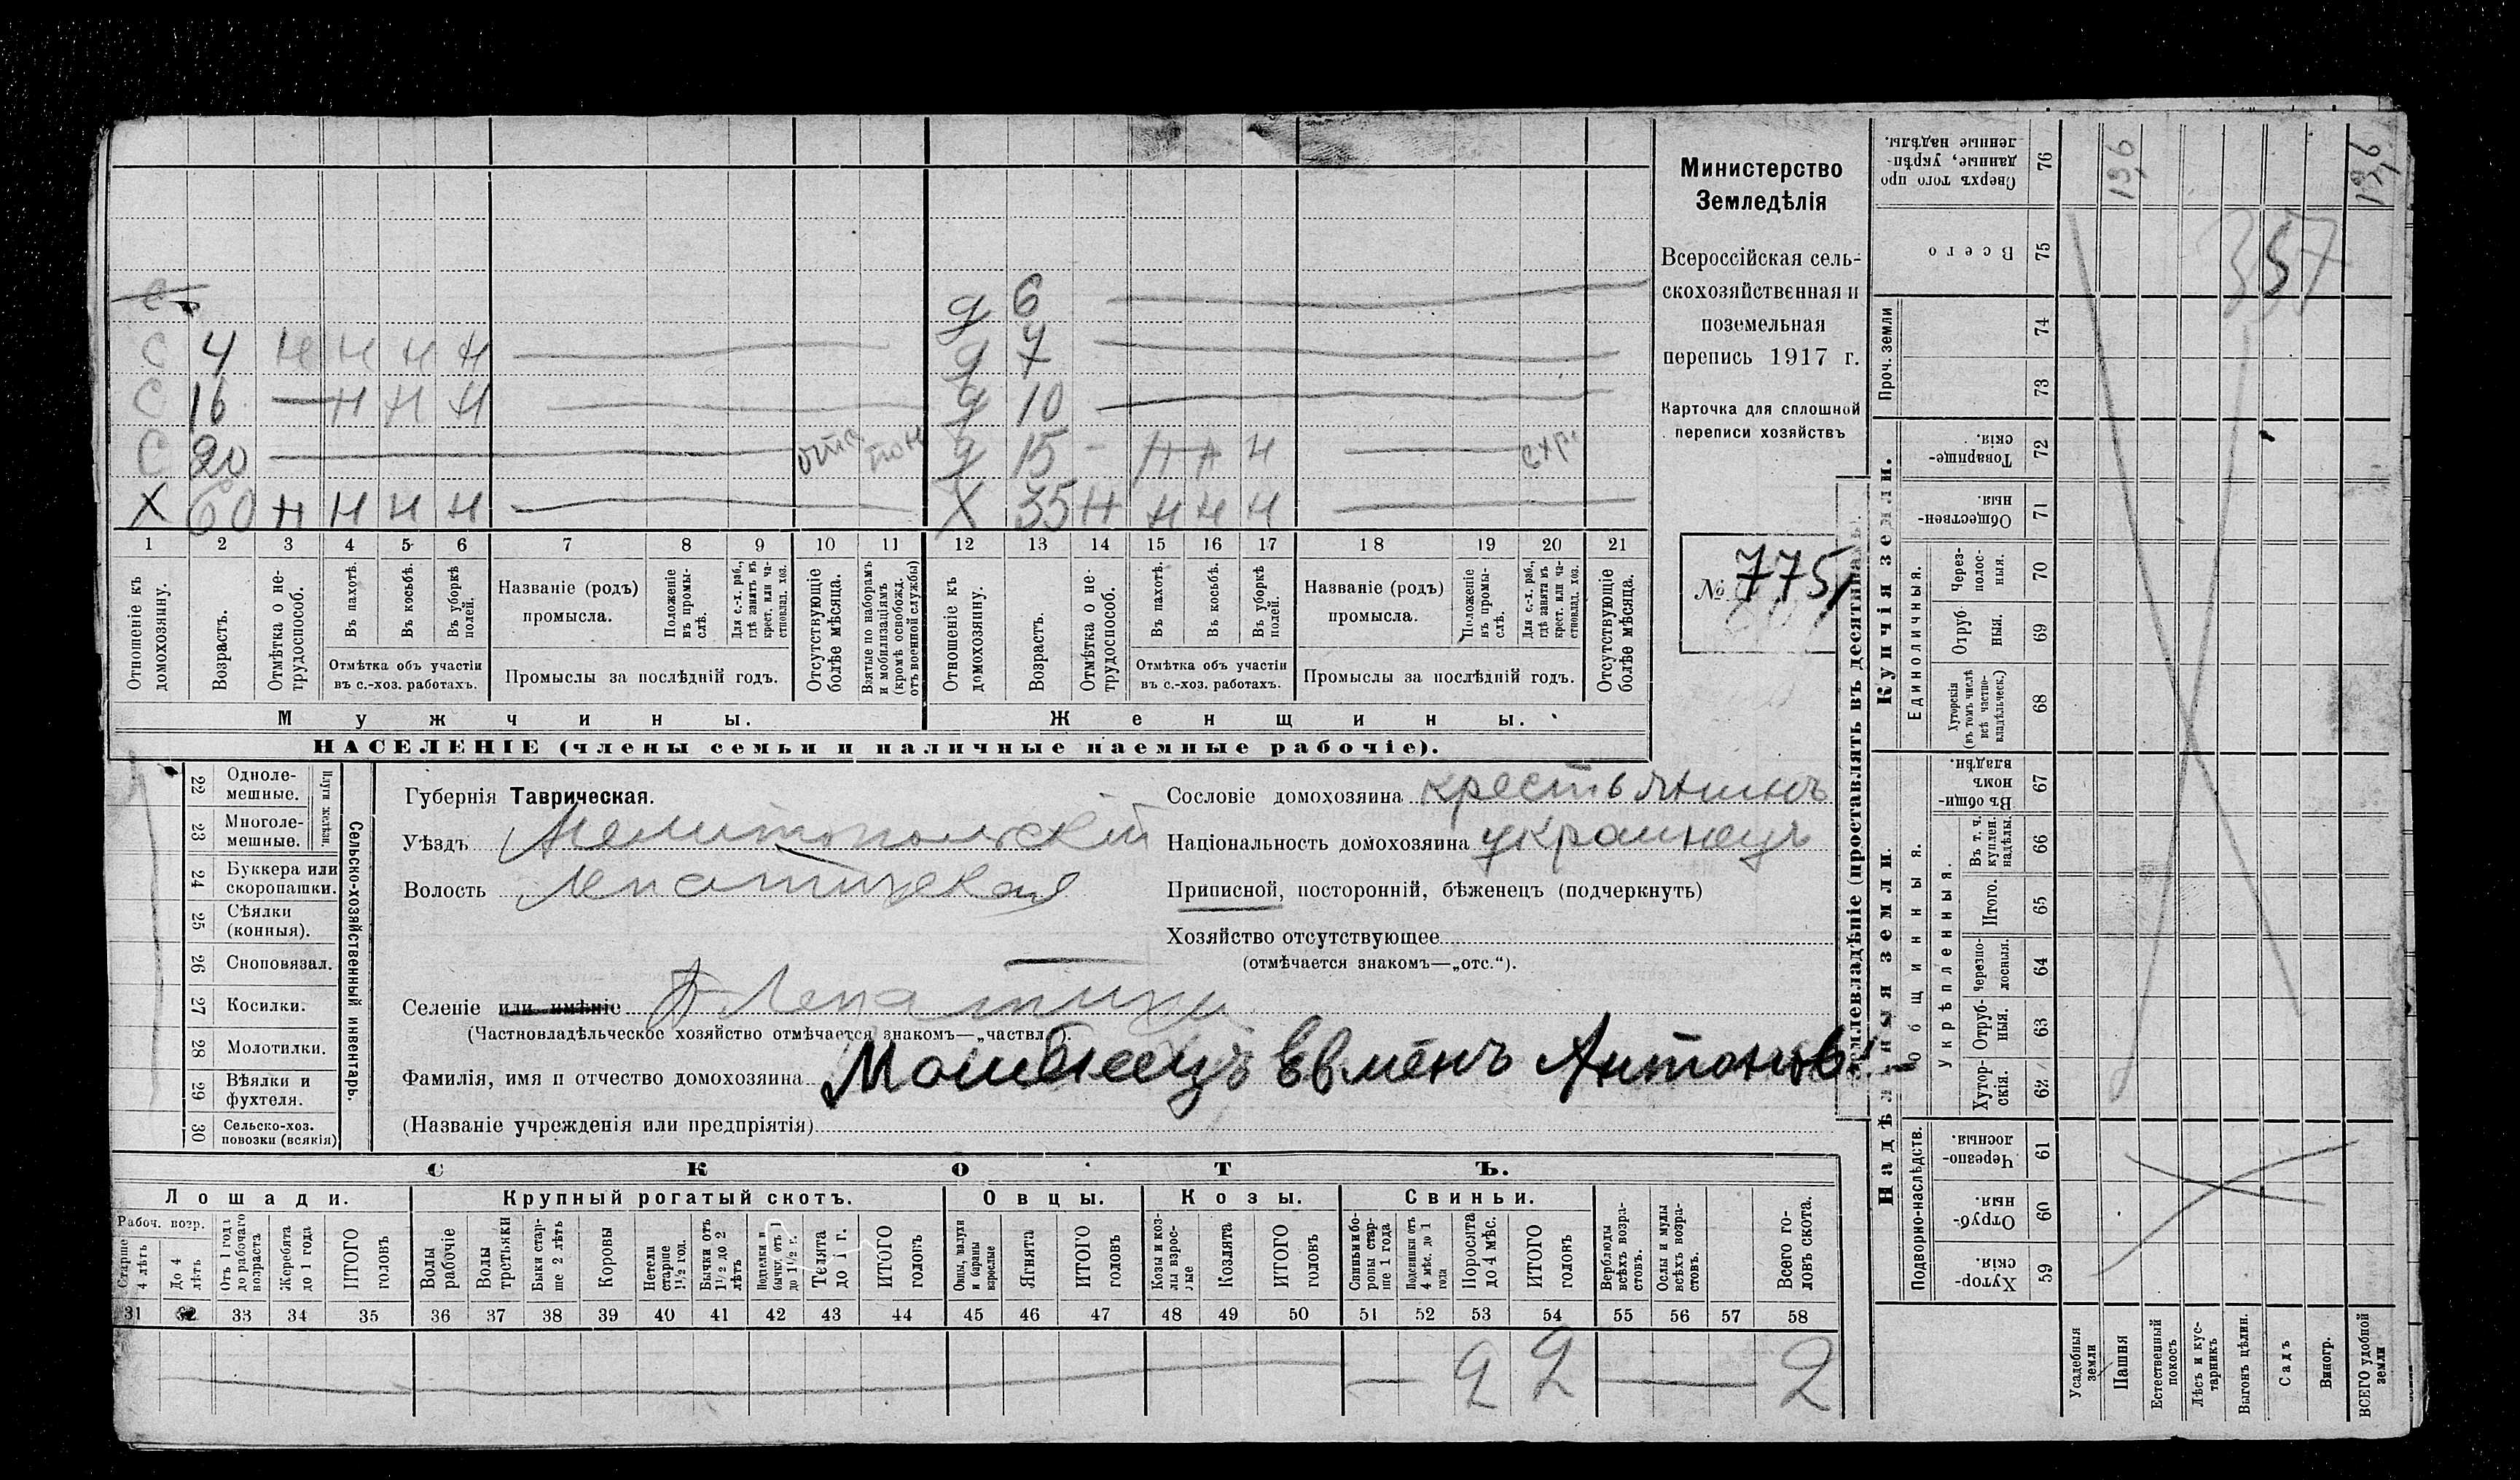 с
с 4 н н н н
с 16 — н н н
с 20 — отс
х 60 н н н н
д 6
д 7
д 10
д 15 - н н н
х 35 н н н н
1 2 3 4 5 6 7 8 9 10 11 12 13 14 15 16 17 18 19 20 21
Отношеніе къ домохозяину.
Возрастъ.
Отмѣтка о нетрудоспособ.
Въ пахотѣ.
Въ косьбѣ.
Въ уборкѣ полей.
Отмѣтка объ участіи въ с.-хоз. работахъ.
Названіе (родъ) промысла.
Положеніе въ промыслѣ.
Для с.-х. раб., гдѣ занятъ въ крест. или частновлад. хоз.
Промыслы за послѣдній годъ.
Отсутствующіе болѣе мѣсяца.
Взятые по наборамъ и мобилизаціямъ (кромѣ освобожд. отъ военной службы)
Отношеніе къ домохозяину.
Возрастъ.
Отмѣтка о нетрудоспособ.
Въ пахотѣ.
Въ косьбѣ.
Въ уборкѣ полей.
Отмѣтка объ участіи въ с.-хоз. работахъ.
Названіе (родъ) промысла.
Положеніе въ промыслѣ.
Для с.-х. раб., гдѣ занятъ въ крест. или частновлад. хоз.
Промыслы за послѣдній годъ.
Отсутствующіе болѣе мѣсяца.
Мужчины.
Женщины.
НАСЕЛЕНІЕ (члены семьи и наличные наемные рабочіе).
Министерство
Земледѣлія
Всероссійская сель-
скохозяйственная и
поземельная
перепись 1917 г.
Карточка для сплошной
переписи хозяйствъ
№ 775
22 Одноле-
мешные.
23 Многоле-
мешные.
Плуги желѣзн.
24 Буккера или
скоропашки.
25 Сѣялки
(конныя).
26 Сноповязал.
27 Косилки.
28 Молотилки.
29 Вѣялки и
фухтеля.
30 Сельско-хоз.
повозки (всякія)
Сельско-хозяйственный инвентарь.
Губернія Таврическая.
Уѣздъ Мелитопольскій
Волость Лепатихская
Селеніе или имѣніе В Лепатиха
(Частновладѣльческое хозяйство отмѣчается знакомъ—„частвл.“).
Фамилія, имя и отчество домохозяина Антонов.
(Названіе учрежденія или предпріятія)
Сословіе домохозяина крестьянинъ
Національность домохозяина украинецъ
Приписной, посторонній, бѣженецъ (подчеркнуть)
Хозяйство отсутствующее
(отмѣчается знакомъ—„отс.“).
СКОТЪ.
Лошади. Крупный рогатый скотъ. Овцы. Козы. Свиньи.
Рабоч. возр.
Старше 4 лѣтъ
До 4 лѣтъ
Отъ 1 года до рабочаго возраста
Жеребята до 1 года
ИТОГО головъ
Волы рабочіе
Волы третьяки
Быки старше 2 лѣтъ
Коровы
Нетели старше 1½ год.
Бычки отъ 1½ до 2 лѣтъ
Подтелки и бычки отъ 1 до 1½ г.
Телята до 1 г.
ИТОГО головъ
Овцы, валухи и бараны взрослые
Ягнята
ИТОГО головъ
Козы и козлы взрослые
Козлята
ИТОГО головъ
Свиньи и боровы старше 1 года
Подсвинки отъ 4 мѣс. до 1 года
Поросята до 4 мѣс.
ИТОГО головъ
Верблюды всѣхъ возрастовъ.
Ослы и мулы всѣхъ возрастовъ.
Всего головъ скота.
31 32 33 34 35 36 37 38 39 40 41 42 43 44 45 46 47 48 49 50 51 52 53 54 55 56 57 58
2 2 2
Землевладѣніе (проставлять въ десятинахъ).
Надѣльныя земли.
Купчія земли.
Проч. земли
Подворно-наслѣдств.
Общинныя.
Укрѣпленныя.
Единоличныя.
Сверхъ того проданные, укрѣпленные надѣлы. 76
Всего 75
74
73
Товарищескія. 72
Общественныя. 71
Черезполосныя. 70
Отрубныя. 69
Хуторскія (въ томъ числѣ всѣ частновладѣльческ.) 68
Въ общинномъ владѣн. 67
Въ т. ч. куплен. надѣлы. 66
Итого. 65
Черезполосныя. 64
Отрубныя. 63
Хуторскія. 62
Черезполосныя. 61
Отрубныя. 60
Хуторскія. 59
Усадебныя земли
Пашня
Естественный покосъ
Лѣсъ и кустарникъ
Выгонъ цѣлин.
Садъ
Виногр.
ВСЕГО удобной земли
13,6
13,6
357